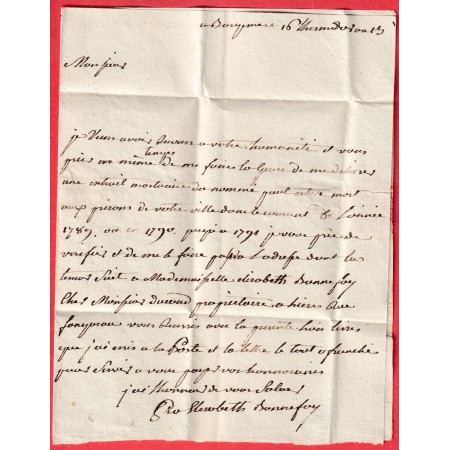 a 16 thermidor an 13
Monsieur
je viens avoir recours a votre humanité et vous
prier en même temps de me faire la grace de me delivrer
une extrait mortuaire du nommé paul mort
aux prisons de votre ville dans le courant de l'année
1789, ou en 1790, jusqu'a 1791 je vous prie de
verifier et de me le faire passer a ladresse dont la
teneur suit a Mademoiselle elisabeth Bonnefoy
Chez Monsieur durand propriétaire a hieres Rue
vous aurez avec la presente trois livres
que j'ai mis a la Poste et la lettre le tout afranchie
pour servir a vous payer vos honnoraires
j'ai l'honneur de vous Saluer
Elisabeth Bonnefoy